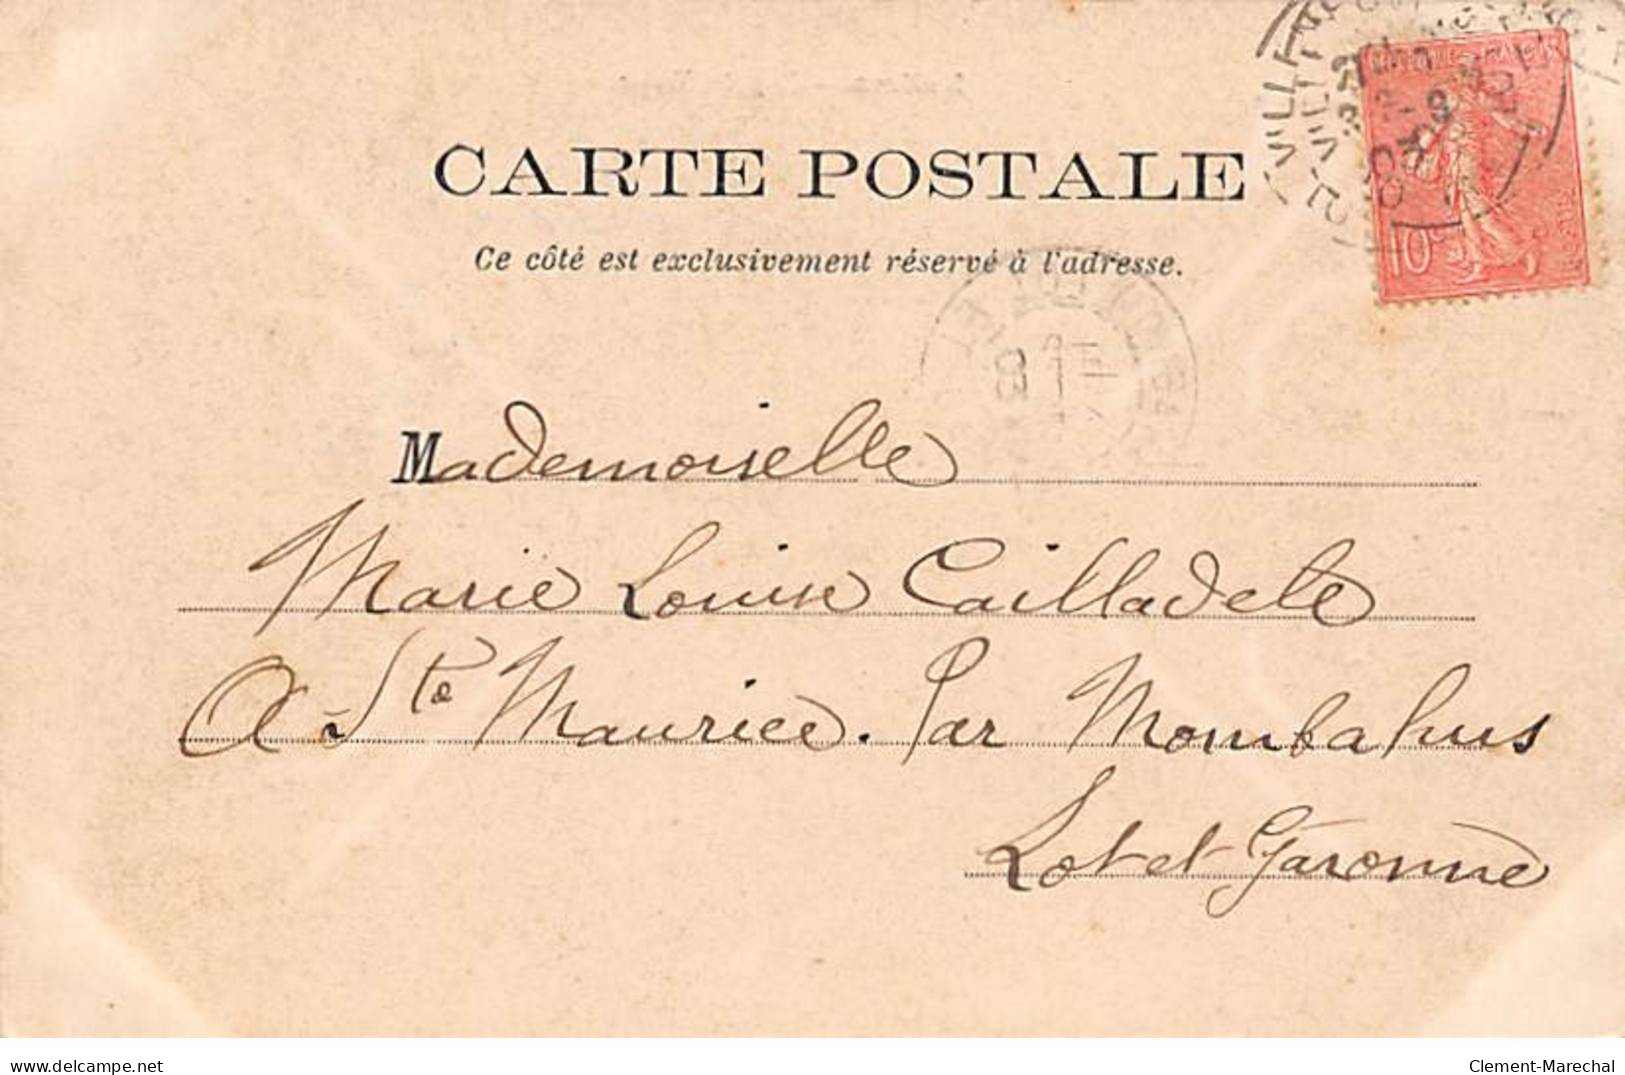 CARTE POSTALE
Ce côté est exclusivement réservé à l'adresse.
10c
Mademoiselle
Marie Louise Cailladele
A Ste Maurice. Par Mombahus
Lot et Garonne
delcampe.net
Clement-Marechal